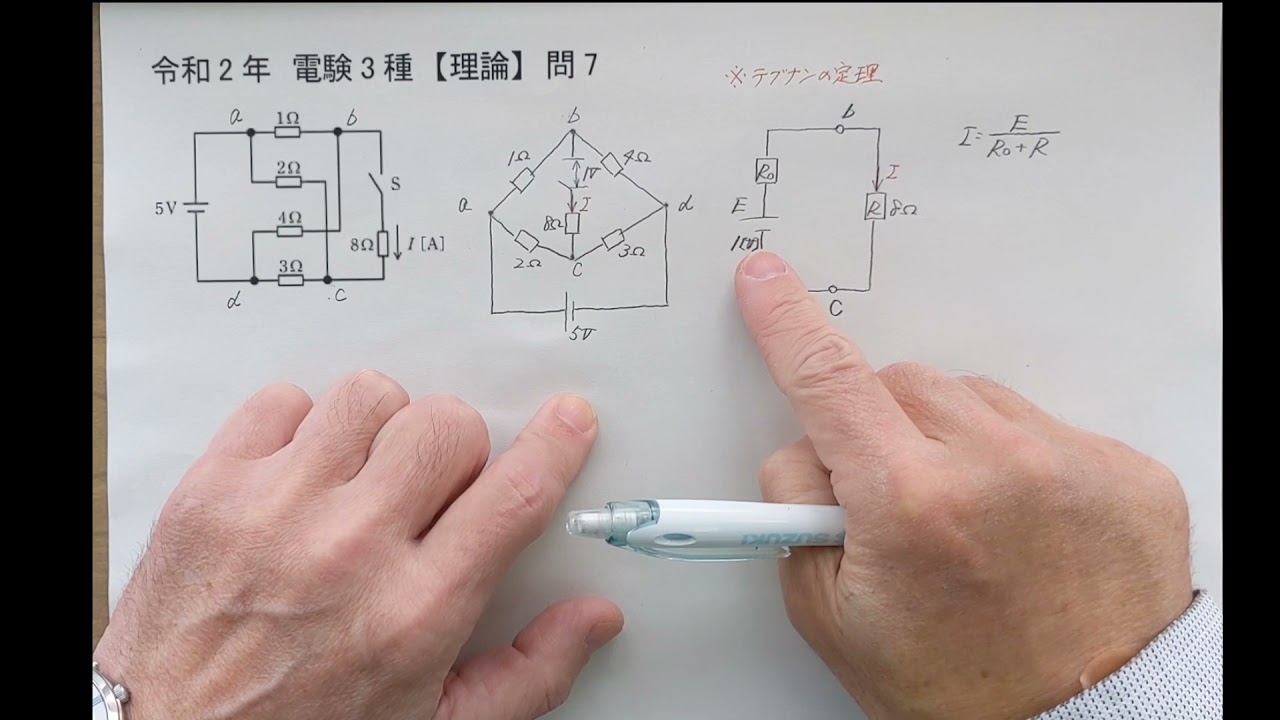 令和2年 電験3種【理論】 問7
※テブナンの定理
a 1Ω b
2Ω
5V
S
4Ω
8Ω I [A]
3Ω
d c
b
1Ω 4Ω
1V
a d
I
8Ω
2Ω 3Ω
C
5V
b
R₀
I
E
R 8Ω
C
I = E / R₀ + R
SUZUKI